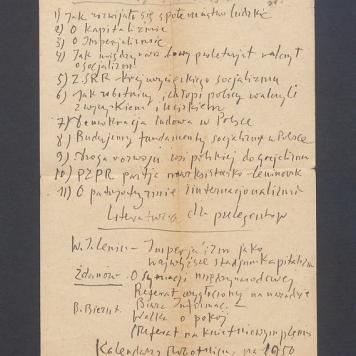 1) Jak rozwijało się społeczeństwo ludzkie
2) O Kapitalizmie
3) O Imperjalizmie
4) Jak międzynarodowy proletarjat walczył
o socjalizm
5) ZSRR – kraj zwycięskiego socjalizmu
6) Jak robotnicy i chłopi polscy walczyli
z wyzyskiem i uciskiem
7) Demokracja Ludowa w Polsce
8) Budujemy fundamenty socjalizmu w Polsce
9) Droga rozwoju wsi polskiej do socjalizmu
10) PZPR partja marksistowsko-leninowsk
11) O patrjotyzmie i internacjonalizmie
Literatura dla prelegentów
W. I. Lenin – Imperjalizm jako
najwyższe stadjum Kapitalizm
Żdanow – O sytuacji międzynarodowej
Referat wygłoszony na naradzie
Biura Informac
B. Bierut. Walka o pokój
(Referat na kwietniowym plenum
Kalendarz Robotniczy na 1950